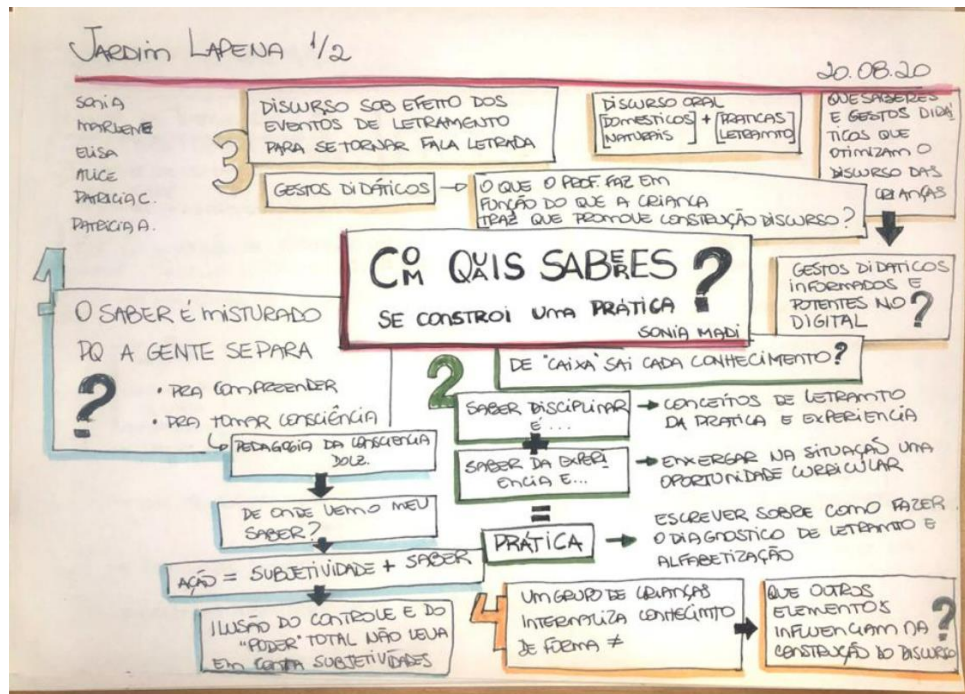 JARDIM LAPENA 1/2
20.08.20
SONIA
MARLENE
ELISA
ALICE
PATRICIA C.
PATRICIA A.
3
DISCURSO SOB EFEITO DOS
EVENTOS DE LETRAMENTO
PARA SE TORNAR FALA LETRADA
DISCURSO ORAL
[DOMESTICOS NATURAIS] + [PRATICAS LETRAMTO]
QUE SABERES
E GESTOS DIDÁ
TICOS QUE
OTIMIZAM O
DISCURSO DAS
CRIANÇAS
GESTOS DIDÁTICOS →
O QUE O PROF. FAZ EM
FUNÇÃO DO QUE A CRIANÇA
TRAZ QUE PROMOVE CONSTRUÇÃO DISCURSO?
COM QUAIS SABERES ?
SE CONSTROI UMA PRÁTICA
SONIA MADI
GESTOS DIDATICOS
INFORMADOS E
POTENTES NO
DIGITAL ?
1
O SABER É MISTURADO
PQ A GENTE SEPARA
?
• PRA COMPREENDER
• PRA TOMAR CONSCIÊNCIA
PEDAGOGIA DA CONSCIENCIA
DOLZ.
DE ONDE VEM O MEU
SABER?
AÇÃO = SUBJETIVIDADE + SABER
ILUSÃO DO CONTROLE E DO
"PODER" TOTAL NÃO LEVA
EM CONTA SUBJETIVIDADES
2
DE "CAIXA" SAI CADA CONHECIMENTO?
SABER DISCIPLINAR
É ...
→ CONCEITOS DE LETRAMTO
DA PRATICA E EXPERIENCIA
+
SABER DA EXPERI
ENCIA E...
→ ENXERGAR NA SITUAÇÃO UMA
OPORTUNIDADE CURRICULAR
=
PRÁTICA →
ESCREVER SOBRE COMO FAZER
O DIAGNOSTICO DE LETRAMTO E
ALFABETIZAÇÃO
4
UM GRUPO DE CRIANÇAS
INTERNALIZA CONHECIMTO
DE FORMA ≠
QUE OUTROS
ELEMENTOS
INFLUENCIAM NA
CONSTRUÇÃO DO DISCURSO
?